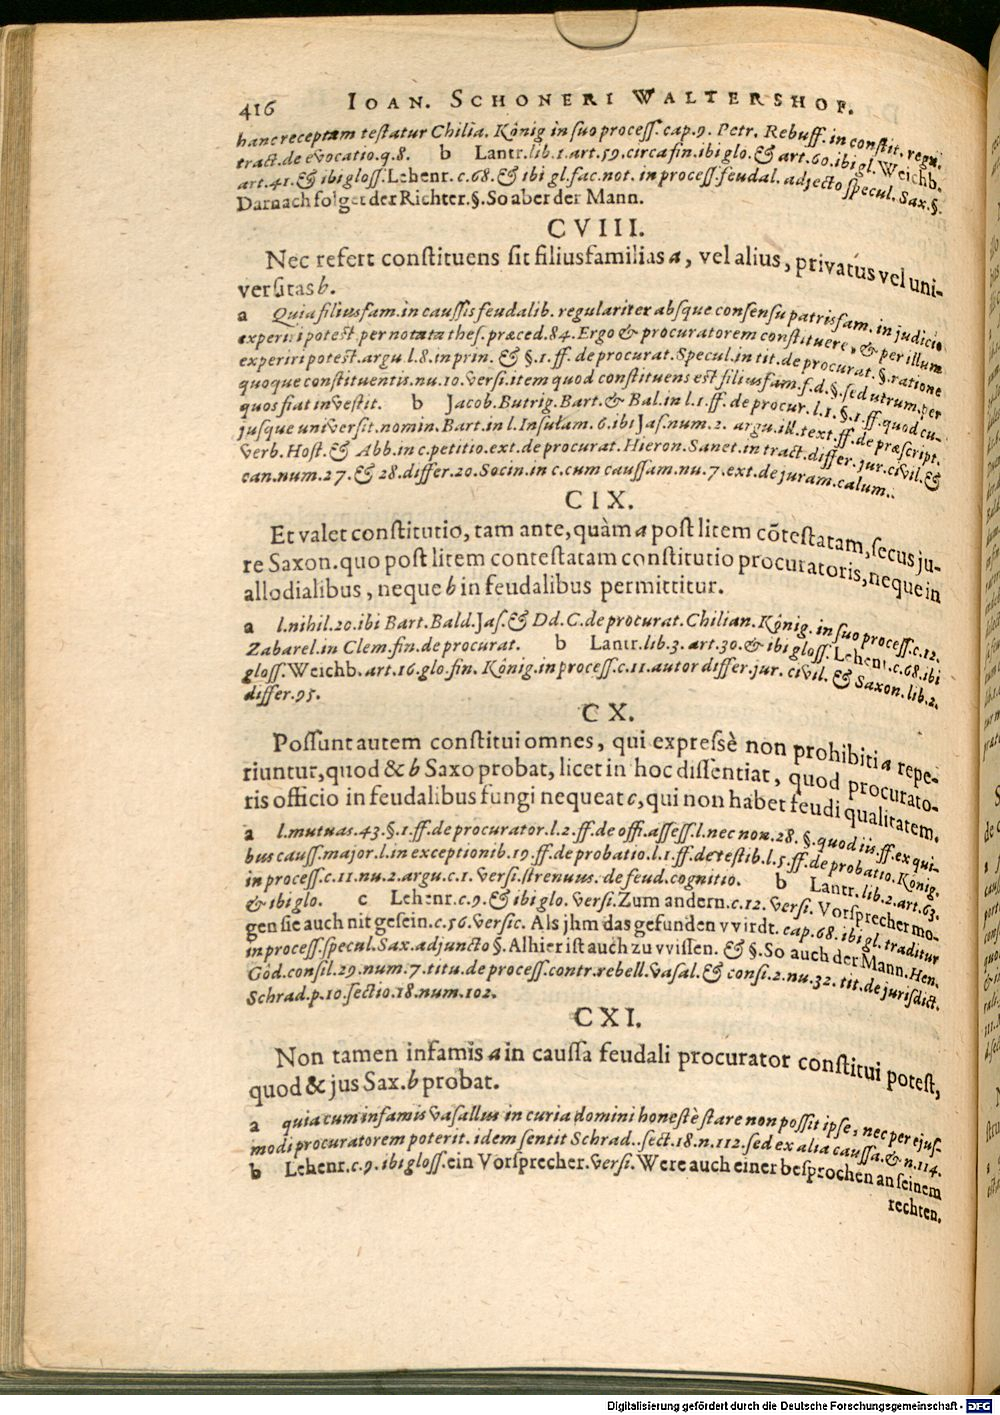 416 IOAN. SCHONERI WALTERSHOF.
hanc receptam teſtatur Chilia. König in ſuo proceſſ. cap. 9. Petr. Rebuff. in conſtit. regii.
tract. de evocatio. q. 8. b Lantr. lib. 1. art. 59. circa fin. ibi glo. & art. 60. ibi gl. Weichb.
art. 41. & ibi gloſſ. Lehenr. c. 68. & ibi gl. fac. not. in proceſſ. feudal. adjecto ſpecul. Sax. §.
Darnach folget der Richter. §. So aber der Mann.
CVIII.
Nec refert conſtituens ſit filiusfamilias a, vel alius, privatus vel uni-
verſitas b.
a Quia filiusfam. in cauſſis feudalib. regulariter abſque conſenſu patrisfam. in judicio
experiri poteſt, per notata theſ. præced. 84. Ergo & procuratorem conſtituere, & per illum
experiri poteſt. argu. l. 8. in prin. & §. 1. ff. de procurat. Specul. in tit. de procurat. §. ratione
quoque conſtituentis. nu. 10. verſi. item quod conſtituens eſt filiusfam. f. d. §. ſed utrum. per
quos fiat inveſtit. b Jacob. Butrig. Bart. & Bal. in l. 1. ff. de procur. l. 1. §. 1. ff. quod cu-
juſque univerſit. nomin. Bart. in l. Inſulam. 6. ibi Jaſ. num. 2. argu. ill. text. ff. de præſcript.
verb. Hoſt. & Abb. in c. petitio. ext. de procurat. Hieron. Sanet. in tract. differ. jur. civil. &
can. num. 27. & 28. differ. 20. Socin. in c. cum cauſſam. nu. 7. ext. de juram. calum..
CIX.
Et valet conſtitutio, tam ante, quàm a poſt litem cõteſtatam, ſecus ju-
re Saxon. quo poſt litem conteſtatam conſtitutio procuratoris, neque in
allodialibus, neque b in feudalibus permittitur.
a l. nihil. 20. ibi Bart. Bald. Jaſ. & Dd. C. de procurat. Chilian. König. in ſuo proceſſ. c. 12.
Zabarel. in Clem. fin. de procurat. b Lantr. lib. 3. art. 30. & ibi gloſſ. Lehenr. c. 68. ibi
gloſſ. Weichb. art. 16. glo. fin. König. in proceſſ. c. 11. autor differ. jur. civil. & Saxon. lib. 2.
differ. 95.
CX.
Poſſunt autem conſtitui omnes, qui expreſsè non prohibiti a repe-
riuntur, quod & b Saxo probat, licet in hoc diſſentiat, quod procurato-
ris officio in feudalibus fungi nequeat c, qui non habet feudi qualitatem.
a l. mutuas. 43. §. 1. ff. de procurator. l. 2. ff. de offi. aſſeſſ. l. nec non. 28. §. quod iis. ff. ex qui-
bus cauſſ. major. l. in exceptionib. 19. ff. de probatio. l. 1. ff. de teſtib. l. 5. ff. de probatio. König.
in proceſſ. c. 11. nu. 2. argu. c. 1. verſi. ſtrenuus. de feud. cognitio. b Lantr. lib. 2. art. 63.
& ibi glo. c Lehenr. c. 9. & ibi glo. verſi. Zum andern. c. 12. verſi. Vorſprecher mo-
gen sie auch nit geſein. c. 56. verſic. Als jhm das gefunden vvirdt. cap. 68. ibi gl. traditur
in proceſſ. ſpecul. Sax. adjuncto §. Alhier iſt auch zu vviſſen. & §. So auch der Mann. Hen.
Göd. conſil. 29. num. 7. titu. de proceſſ. contr. rebell. vaſal. & conſi. 2. nu. 32. tit. de jurisdict.
Schrad. p. 10. ſectio. 18. num. 102.
CXI.
Non tamen infamis a in cauſſa feudali procurator conſtitui poteſt,
quod & jus Sax. b probat.
a quia cum infamis vaſallus in curia domini honeſtè ſtare non poſſit ipſe, nec per ejuſ-
modi procuratorem poterit. idem ſentit Schrad.. ſect. 18. n. 112. ſed ex alia cauſſa. & n. 114.
b Lehenr. c. 9. ibi gloſſ. ein Vorſprecher. verſi. Were auch einer beſprochen an ſeinem
rechten.
Digitalisierung gefördert durch die Deutsche Forschungsgemeinschaft - DFG